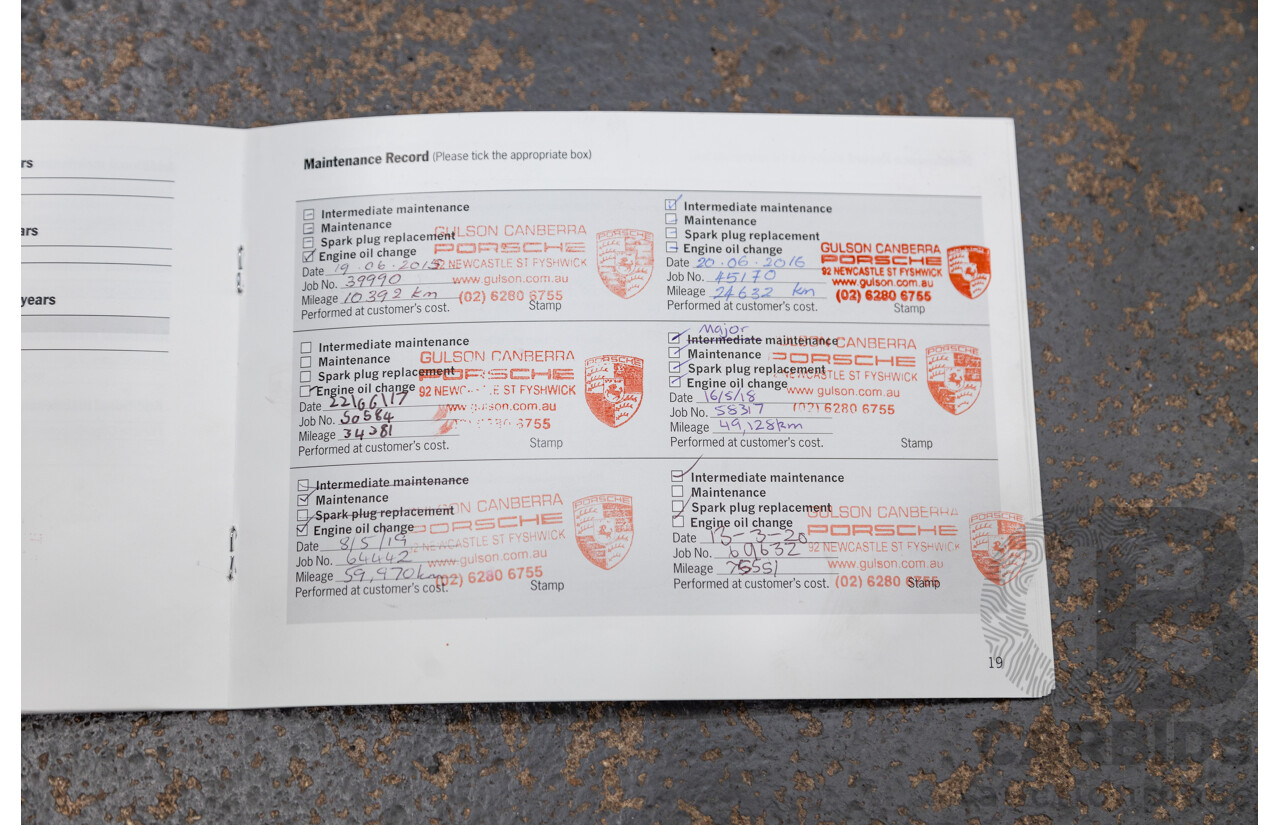 rs
ars
years
Maintenance Record (Please tick the appropriate box)
Intermediate maintenance
Maintenance
Spark plug replacement
Engine oil change
Date 19.06.2015
Job No. 39990
Mileage 10392 km
Performed at customer's cost.
GULSON CANBERRA
PORSCHE
92 NEWCASTLE ST FYSHWICK
www.gulson.com.au
(02) 6280 6755
Stamp
PORSCHE
Intermediate maintenance
Maintenance
Spark plug replacement
Engine oil change
Date 20.06.2016
Job No. 45170
Mileage 24632 km
Performed at customer's cost.
GULSON CANBERRA
PORSCHE
92 NEWCASTLE ST FYSHWICK
www.gulson.com.au
(02) 6280 6755
Stamp
Intermediate maintenance
Maintenance
Spark plug replacement
Engine oil change
Date 22/06/17
Job No. 50584
Mileage 34381
Performed at customer's cost.
GULSON CANBERRA
PORSCHE
92 ST FYSHWICK
www.gulson.com.au
6755
Stamp
PORSCHE
Major
Intermediate maintenance
Maintenance
Spark plug replacement
Engine oil change
Date 16/5/18
Job No. 58317
Mileage 49,128km
Performed at customer's cost.
CANBERRA
PORSCHE
NEWCASTLE ST FYSHWICK
www.gulson.com.au
(02) 6280 6755
Stamp
PORSCHE
Intermediate maintenance
Maintenance
Spark plug replacement
Engine oil change
Date 8/5/19
Job No. 64442
Mileage 59,970km
Performed at customer's cost.
GULSON CANBERRA
PORSCHE
92 NEWCASTLE ST FYSHWICK
www.gulson.com.au
(02) 6280 6755
Stamp
PORSCHE
Intermediate maintenance
Maintenance
Spark plug replacement
Engine oil change
Date 13-3-20
Job No. 69632
Mileage 75551
Performed at customer's cost.
GULSON CANBERRA
PORSCHE
92 NEWCASTLE ST FYSHWICK
www.gulson.com.au
(02) 6280 6755
Stamp
PORSCHE
19
CARBIDS